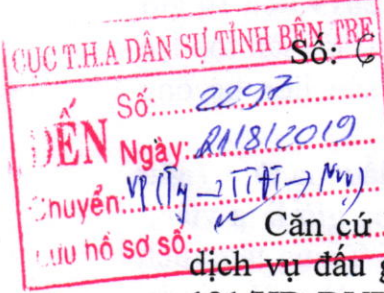 CỤC T.H.A DÂN SỰ TỈNH BẾN TRE
Số:
ĐẾN
Số:..... 2297
Ngày: 21/8/2019
Chuyển:
Lưu hồ sơ số:
Căn cứ
dịch vụ đấu g